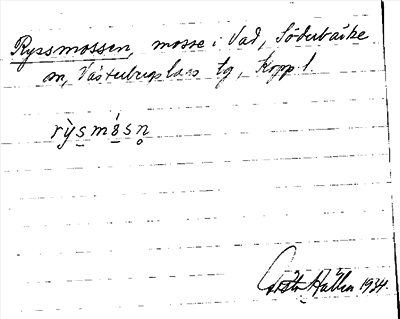 Ryssmossen, mosse i Vad, Söderbärke
sn, Västerbergslags tg, Kopp. l.
rỳsmósn̥
1934